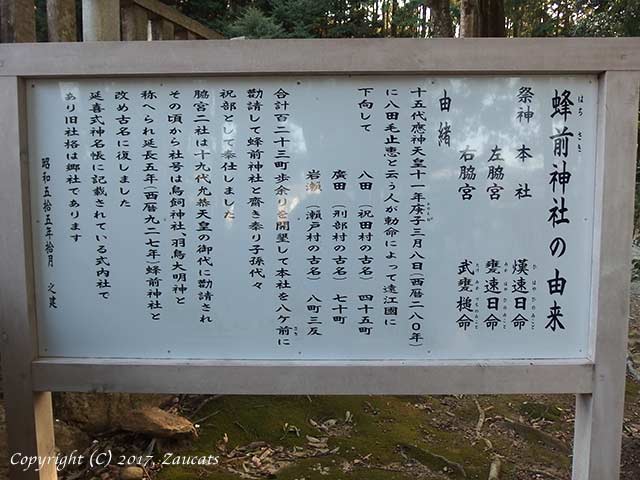 蜂前神社の由来
はちさき
祭神 本社 熯速日命
ひはやひのみこと
左脇宮 甕速日命
みかはやひのみこと
右脇宮 武甕槌命
たけみかづちのみこと
由緒
十五代應神天皇十一年庚子三月八日(西暦二八〇年)
に八田毛止恵と云う人が勅命によって遠江國に
下向して 八田(祝田村の古名)四十五町
廣田(刑部村の古名)七十町
岩瀬(瀬戸村の古名)八町三反
合計百二十三町歩余りを開墾して本社を八ケ前に
勸請して蜂前神社と齋き奉り子孫代々
祝部として奉仕しました
脇宮二社は十九代允恭天皇の御代に勸請され
その頃から社号は鳥飼神社、羽鳥大明神と
称へられ延長五年(西暦九二七年)蜂前神社と
改め古名に復しました
延喜式神名帳に記載されている式内社で
あり旧社格は郷社であります
昭和五拾五年拾月 之建
Copyright (C) 2017, Zaucats